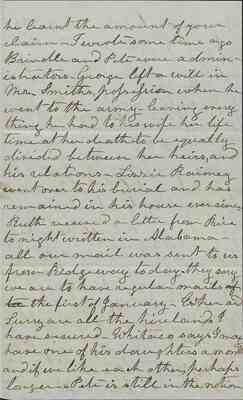 he learnt the amount of your
claim - I wrote some time ago
Brindle and Pete were admin-
istrators - George left a will in
Mr. Smith's possession when he
went to the army - leaving every
thing he had to his wife her life
time at her death to be equally
divided between her heirs, and
his relations - Lizzie Rainey
went over to his burial and has
remained in his house ever since
Ruth received a letter from Rice
to night written in Alabama -
all our mail was sent to us
from Ridgeway to day, they say
we are to have regular mails
the first of January - When
are all the hirelands I
have secured - says I may
have one of his daughters a month
and if we like each other, perhaps
longer - Pete is still in the notion